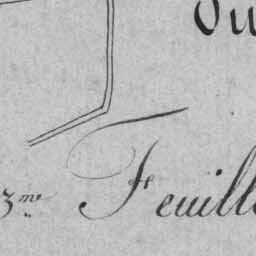 du
3.me Feuille